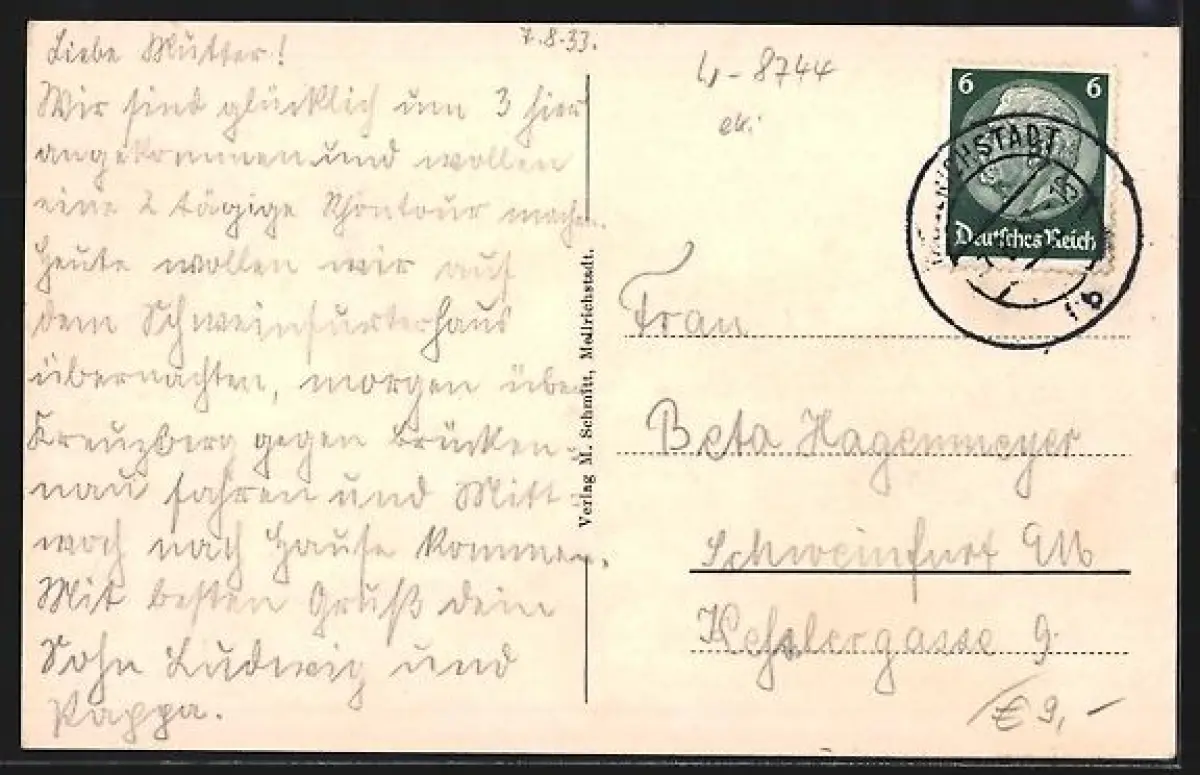 7.8.33.
Liebe Mutter!
Wir sind glücklich um 3 hier
angekommen und wollen
eine 2 tägige Rhöntour machen.
Heute wollen wir auf
dem Schweinfurterhaus
übernachten, morgen über
Kreuzberg gegen Brücken-
nau fahren und Mitt-
woch nach Hause kommen.
Mit besten Gruß dein
Sohn Ludwig und
Pappa.
Verlag M. Schmitt, Mellrichstadt.
8744
6 6
Deutsches Reich
MELLRICHSTADT
b
Frau
Beta Hagenmeyer
Schweinfurt a/M
Keßlergasse 9.
€ 9,-